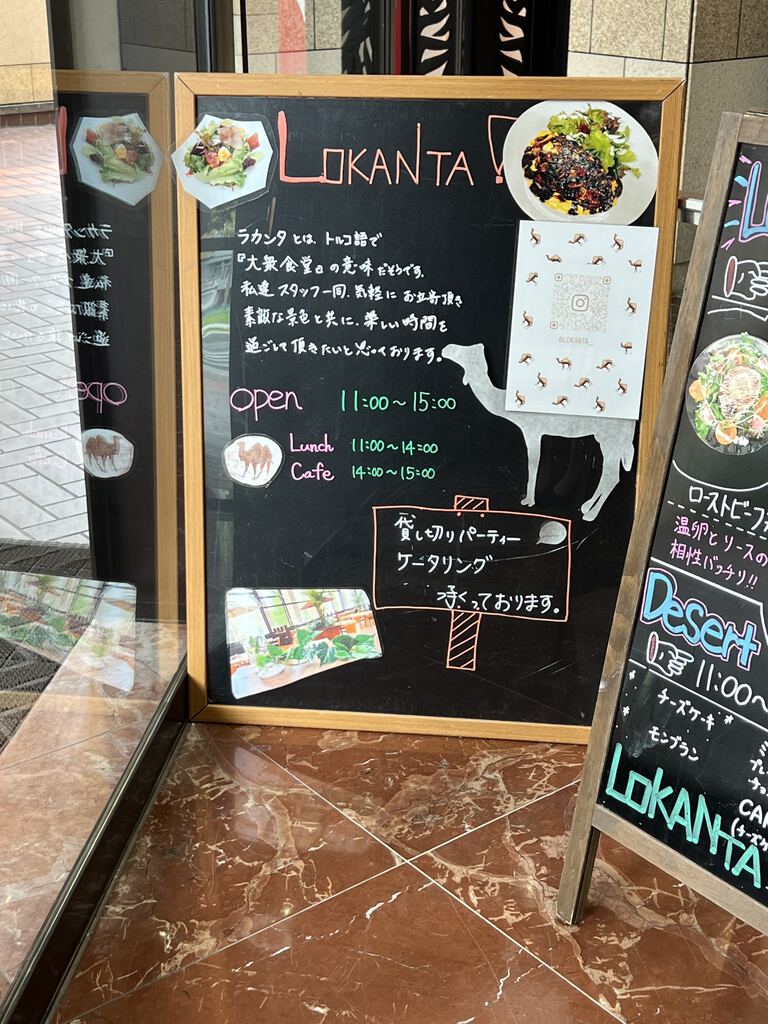 LOKANTA!
ラカンタとは、トルコ語で
『大衆食堂』の意味だそうです。
私達スタッフ一同、気軽にお立寄頂き
素敵な景色と共に、楽しい時間を
過ごして頂きたいと思っております。
@LOKANTA_
open 11:00～15:00
Lunch 11:00～14:00
Cafe 14:00～15:00
貸し切りパーティー
ケータリング
承くっております。
ローストビーフ
温卵とソースの
相性バッチリ!!
Desert
11:00～
チーズケーキ
モンブラン
LOKANTA